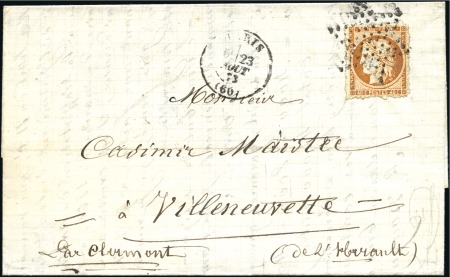 PARIS
23
AOUT
73
(60)
Monsieur
Casimir Maistre
à Villeneuvette
Par Clermont (de l'Herault)